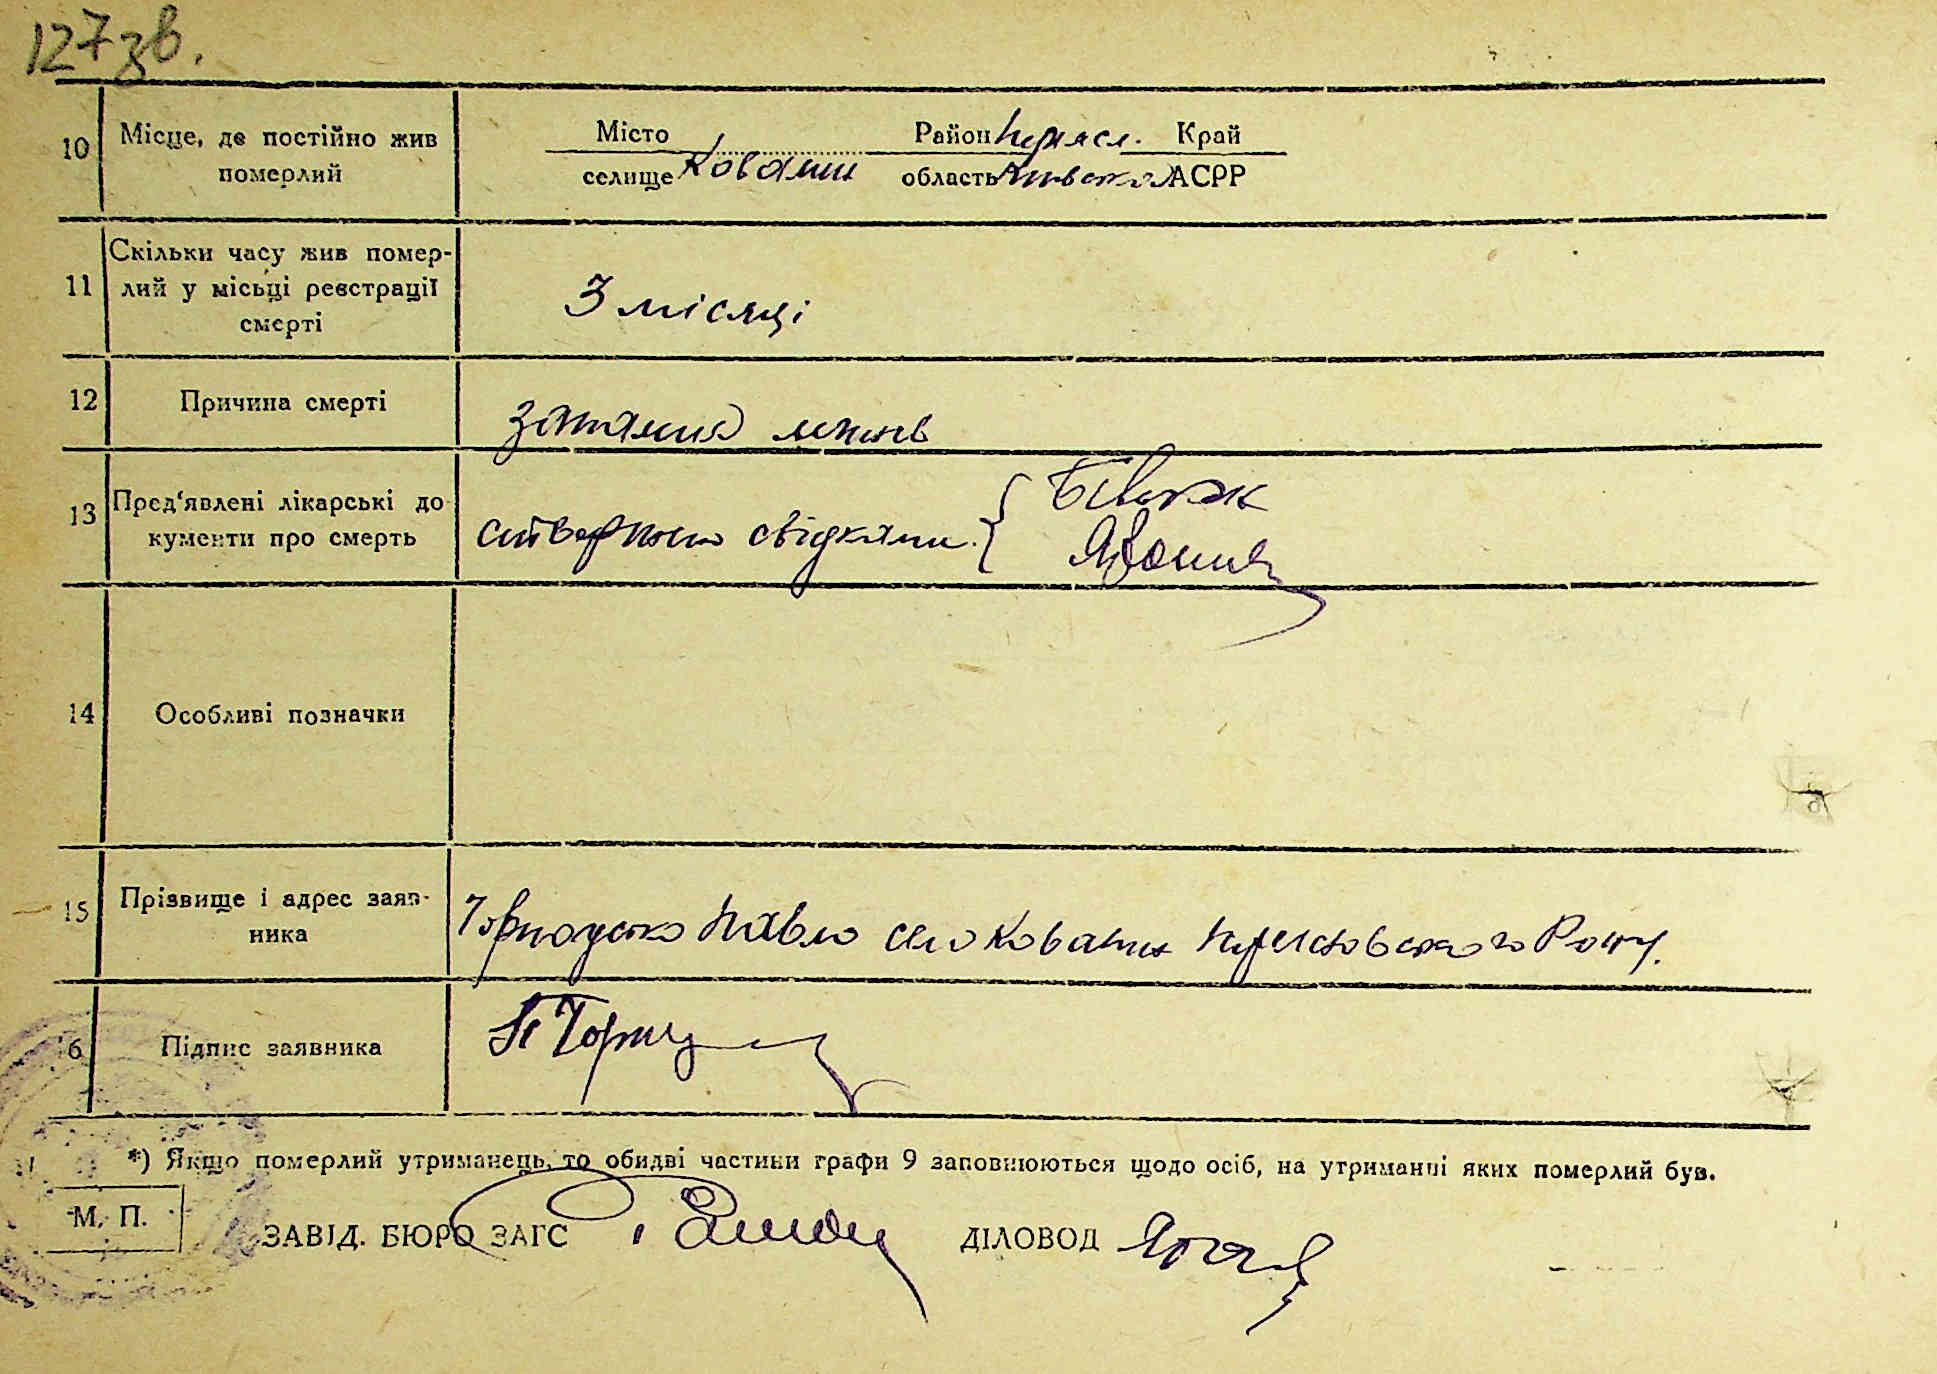 127 зв.
10 Місце, де постійно жив
померлий
Місто Район Переясл. Край
селище Ковалин область Київська АСРР
11 Скільки часу жив помер-
лий у місьці реєстрації
смерті
3 місяці
12 Причина смерті
запалення легенів
13 Пред'явлені лікарські до
кументи про смерть
ствержено свідками {
14 Особливі позначки
15 Прізвище і адрес заяв-
ника
Павло село Ковалин Переяславського Р-ну.
16 Підпис заявника
*) Якщо померлий утриманець, то обидві частини графи 9 заповнюються щодо осіб, на утриманні яких померлий був.
М. П.
ЗАВІД. БЮРО ЗАГС ДІЛОВОД